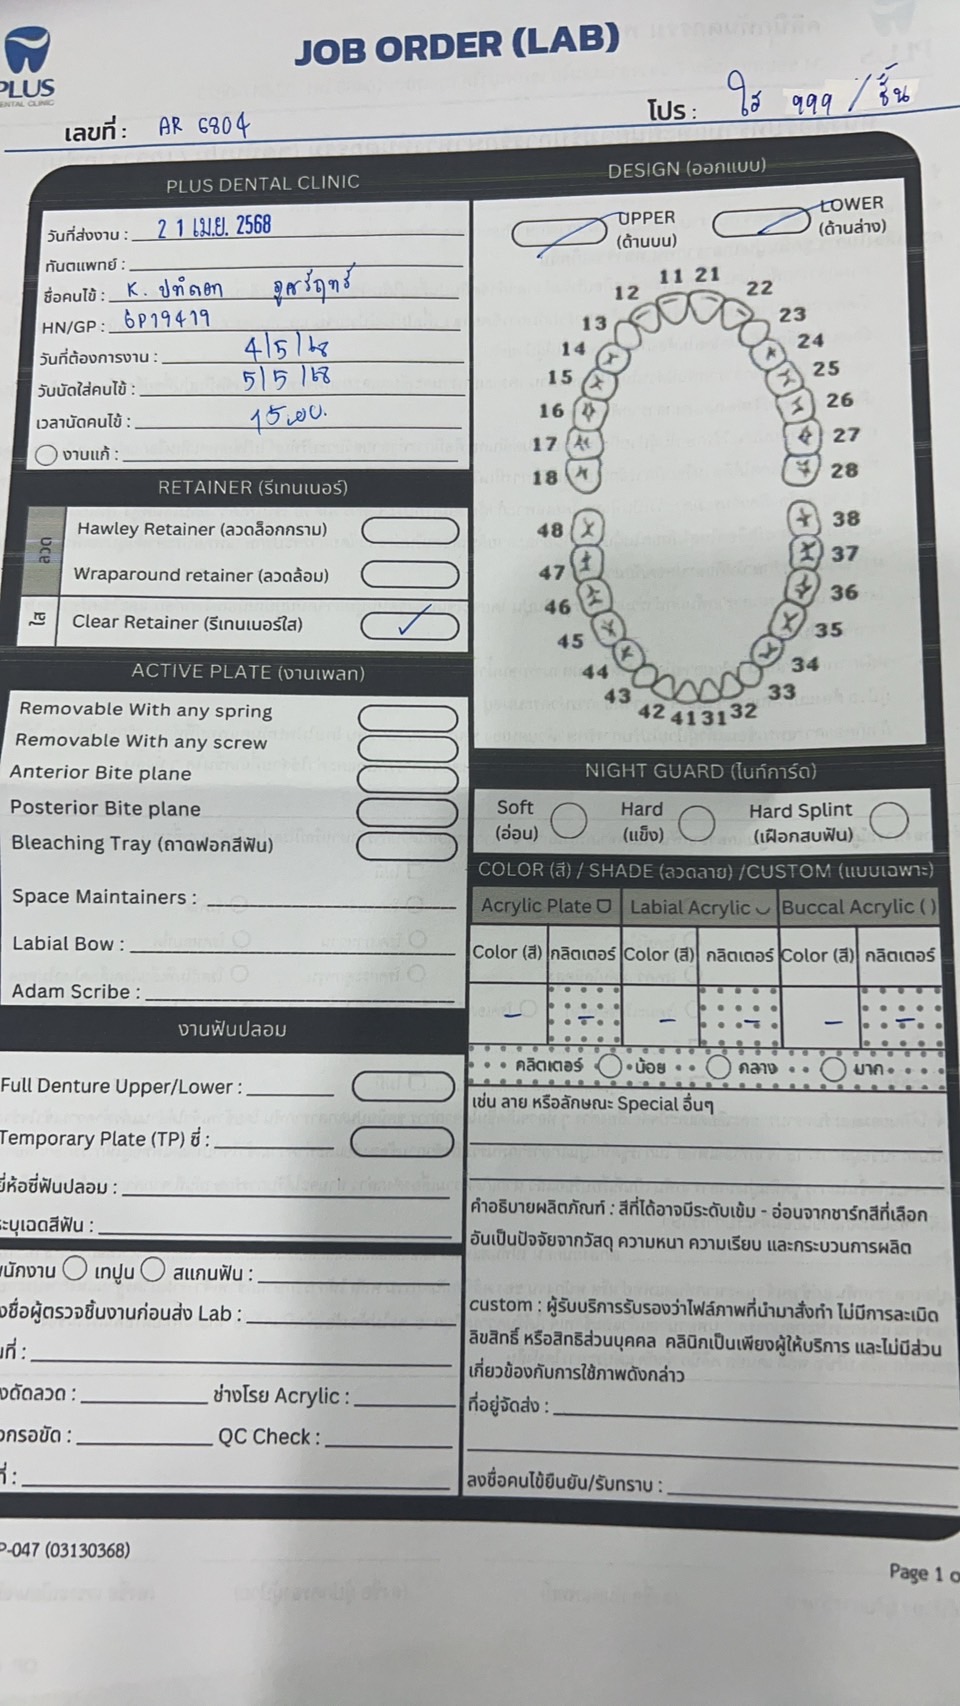 PLUS
DENTAL CLINIC
JOB ORDER (LAB)
เลขที่ : AR 6804
โปร : ใส 999 / ชิ้น
PLUS DENTAL CLINIC
วันที่ส่งงาน : 21 เม.ย. 2568
ทันตแพทย์ :
ชื่อคนไข้ : K.
HN/GP : GP19419
วันที่ต้องการงาน : 4/5/68
วันนัดใส่คนไข้ : 5/5/68
เวลานัดคนไข้ : 15.00.
งานแก้ :
RETAINER (รีเทนเนอร์)
ลวด
Hawley Retainer (ลวดล็อกกราม)
Wraparound retainer (ลวดล้อม)
ใส
Clear Retainer (รีเทนเนอร์ใส) ✓
ACTIVE PLATE (งานเพลท)
Removable With any spring
Removable With any screw
Anterior Bite plane
Posterior Bite plane
Bleaching Tray (ถาดฟอกสีฟัน)
Space Maintainers :
Labial Bow :
Adam Scribe :
งานฟันปลอม
Full Denture Upper/Lower :
Temporary Plate (TP) ซี่ :
ยี่ห้อซี่ฟันปลอม :
ระบุเฉดสีฟัน :
พนักงาน เทปูน สแกนฟัน :
ลงชื่อผู้ตรวจชิ้นงานก่อนส่ง Lab :
ที่ :
ดัดลวด : ช่างโรย Acrylic :
กรอขัด : QC Check :
ที่ :
DESIGN (ออกแบบ)
UPPER
(ด้านบน)
LOWER
(ด้านล่าง)
11 21
12 22
13 23
14 24
15 25
16 26
17 27
18 28
48 38
47 37
46 36
45 35
44 34
43 33
42 41 31 32
NIGHT GUARD (ไนท์การ์ด)
Soft
(อ่อน)
Hard
(แข็ง)
Hard Splint
(เฝือกสบฟัน)
COLOR (สี) / SHADE (ลวดลาย) /CUSTOM (แบบเฉพาะ)
Acrylic Plate Labial Acrylic Buccal Acrylic ( )
Color (สี) กลิตเตอร์ Color (สี) กลิตเตอร์ Color (สี) กลิตเตอร์
- - - - - -
คลิตเตอร์ น้อย กลาง มาก
เช่น ลาย หรือลักษณะ Special อื่นๆ
คำอธิบายผลิตภัณฑ์ : สีที่ได้อาจมีระดับเข้ม - อ่อนจากชาร์ทสีที่เลือก
อันเป็นปัจจัยจากวัสดุ ความหนา ความเรียบ และกระบวนการผลิต
custom : ผู้รับบริการรับรองว่าไฟล์ภาพที่นำมาสั่งทำ ไม่มีการละเมิด
ลิขสิทธิ์ หรือสิทธิส่วนบุคคล คลินิกเป็นเพียงผู้ให้บริการ และไม่มีส่วน
เกี่ยวข้องกับการใช้ภาพดังกล่าว
ที่อยู่จัดส่ง :
ลงชื่อคนไข้ยืนยัน/รับทราบ :
P-047 (03130368)
Page 1 o